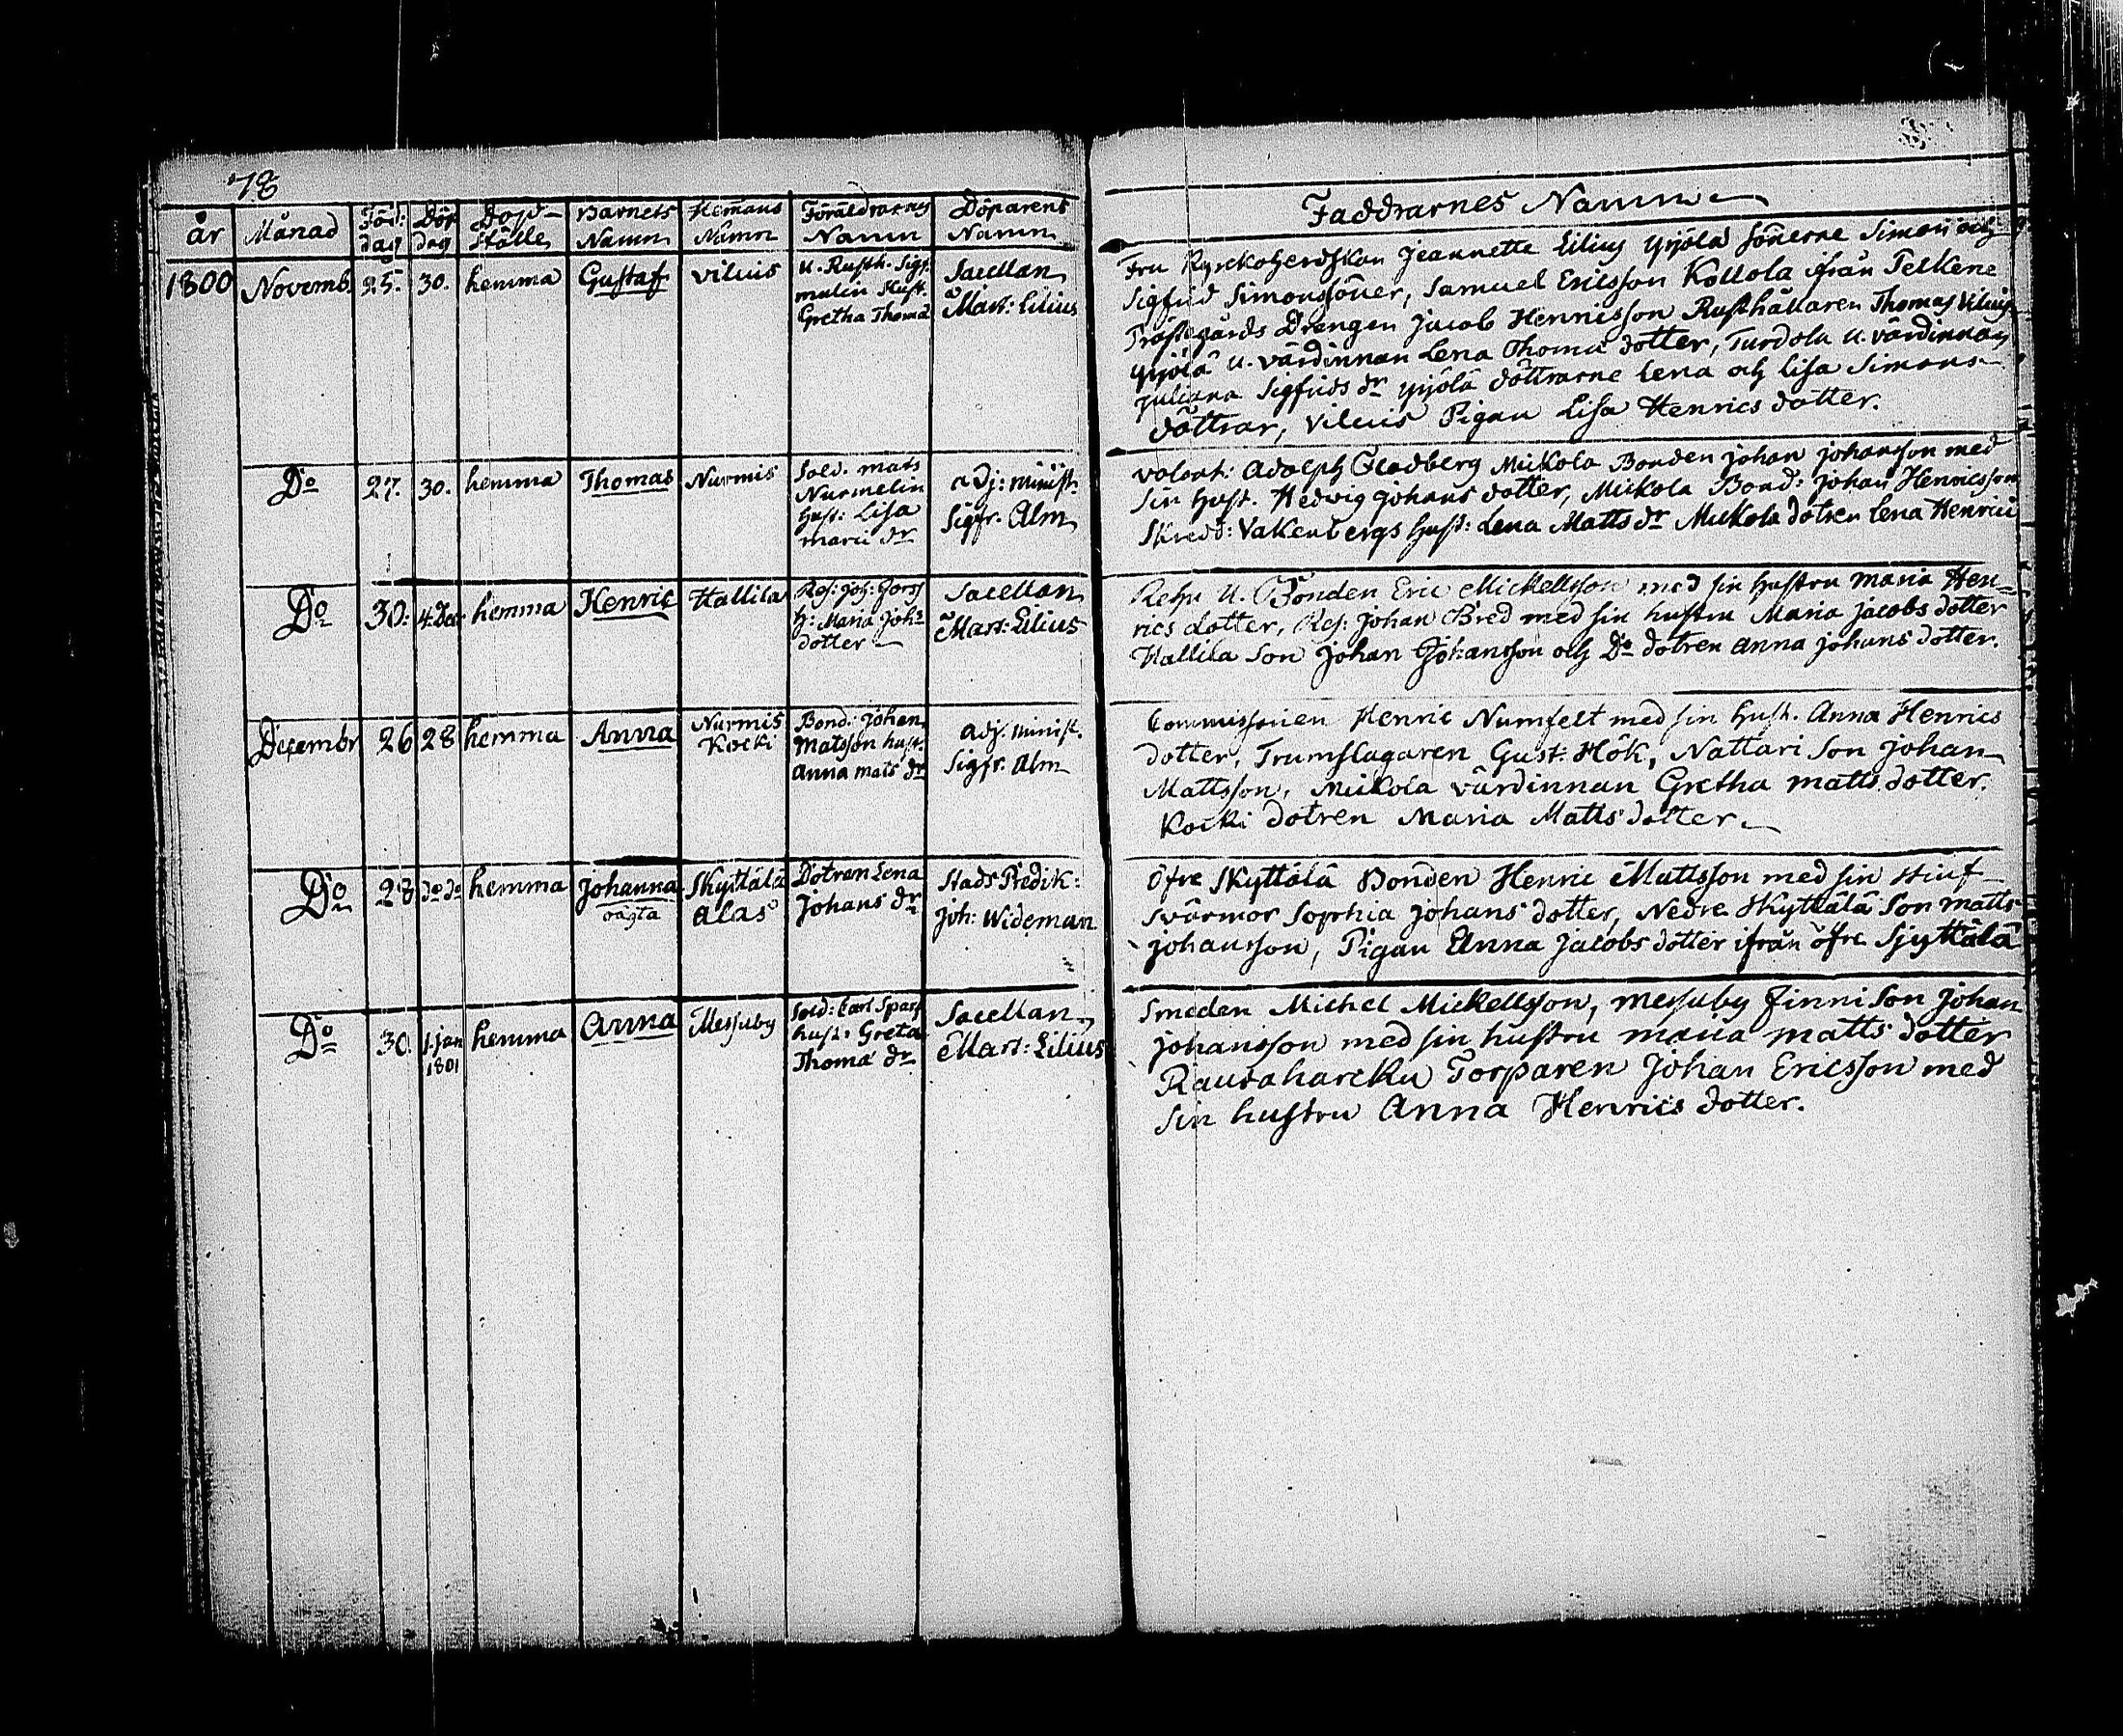 78
år Månad Föd: dag Döp dag Dop- ställe Barnets Namn Hemans Namn Föräldrarnes Namn Döparens Namn
Faddrarnes Namn
1800 Novemb. 25. 30. hemma Gustaf Viluis
U. Rusth. Sigf.
mulin Hust.
Gretha Thoma
Sacellan
Mart: Lilius
Fru Kyrckoherdskan Jeannette Lilius Yrjölä Sönerne Simon och
Sigfrid Simonssöner, Samuel Ericsson Kollola ifrån Pelkene
Prästegårds Drengen Jacob Henricsson Rusthållaren Thomas Vilius
Yrjölä U. värdinnan Lena Thomæ dotter, Turdola U. värdinnan
Juliana Sigfrids dr Yrjölä döttrarne Lena och Lisa Simons
döttrar, Viluis Pigan Lisa Henrics dotter.
Do 27. 30. hemma Thomas Nurmis
Sold. mats
Nurmelin
hust: Lisa
marci dr
adj: minist:
Sigfr. Alm
Volont: Adolph Gladberg Mickola Bonden Johan Johansson med
Sin Hust. Hedvig Johans dotter, Mickola Bond: Johan Henricsson
Skredd: Vakenbergs Hust: Lena Matts dr Mickola dotren Lena Henrici
Do 30. 4. Dec hemma Henric Hallila
Res: Joh: Fors
h: Maria Johs
dotter
Sacellan
Mart: Lilius
U. Bonden Eric Mickellsson med sin hustru Maria Hen-
rics dotter, Res: Johan Bred med sin hustru Maria Jacobs dotter
Hallila Son Johan Johansson och Do dotren Anna Johans dotter.
Decembr 26 28 hemma Anna
Nurmis
Kocki
Bond: Johan
Matsson hust:
Anna mats dr
adj. minist.
Sigfr. Alm
Commissarien Henric Numfelt med sin hust. Anna Henrics
dotter, Trumslagaren Gust: Hök, Nattari Son Johan
Mattsson, Mickola värdinnan Gretha matts dotter.
Kocki dotren Maria Matts dotter
Do 28 do do hemma Johanna
oägta
Skyttälä
Alas
Dotren Lena
Johans dr
Stads Predik:
Joh: Wideman
Öfre Skyttälä Bonden Henric Mattsson med sin Stiuf
Svärmor Sophia Johans dotter, Nedre Skyttälä Son matts
Johansson, Pigan Anna Jacobs dotter ifrån öfre Sjyttälä
Do 30. 1. jan 1801 hemma Anna Messuby
Sold: Carl Sparf
hust: Greta
Thoma dr
Sacellan
Mart: Lilius
Smeden Michel Mickellsson, Messuby Finni Son Johan
Johansson med sin hustru maria matts dotter
Rautaharcku Torparen Johan Ericsson med
Sin hustru Anna Henrics dotter.